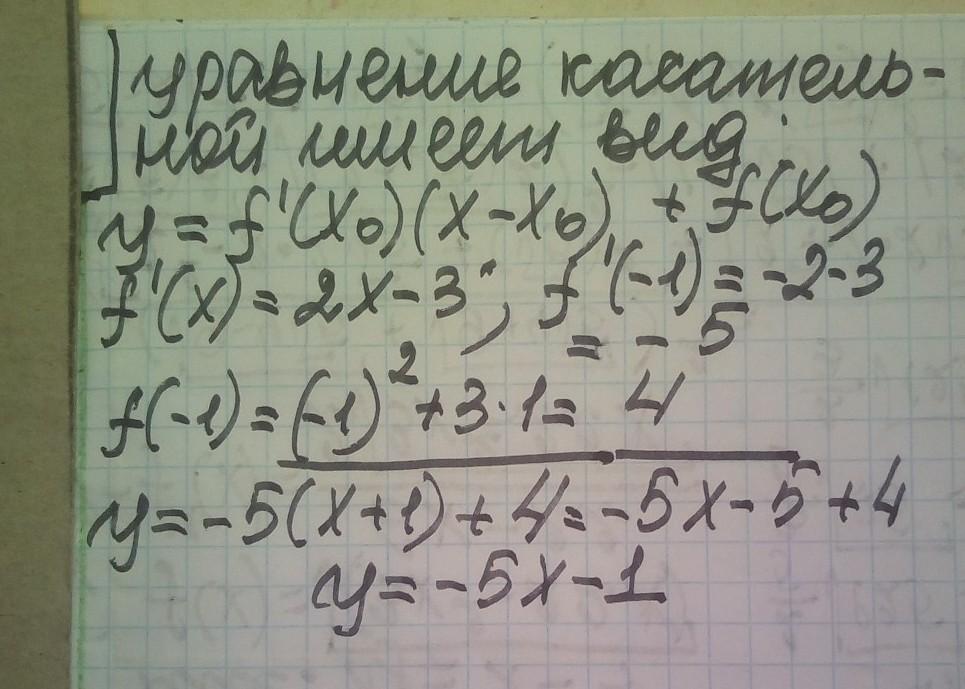 уравнение касатель-
ной имеет вид:
y = f'(x₀)(x-x₀) + f(x₀)
f'(x) = 2x-3 ; f'(-1) = -2-3
= - 5
f(-1) = (-1)² + 3·1 = 4
y = -5(x+1) + 4 = -5x-5+4
y = -5x-1